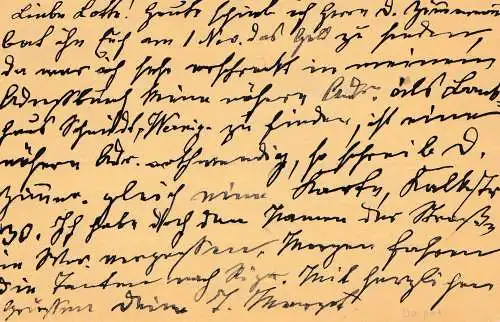 Liebe Lotte! Heute schrieb ich Herrn D. Zimmermann
bat ihn Euch am 1 Nov. das Geld zu senden
da war ich sehr erschreckt in meinem
Adressbuch keine nähere Adr. als Bank
haus Schmidt, zu finden, ist eine
nähere Adr. nothwendig, so schreib D.
Zimm. gleich eine Karte, Kalkstr
30. Ich habe doch den Namen der Straße
in vergessen, Morgen fahren
die Tanten nach Riga. Mit herzlichen
Grüssen Deine